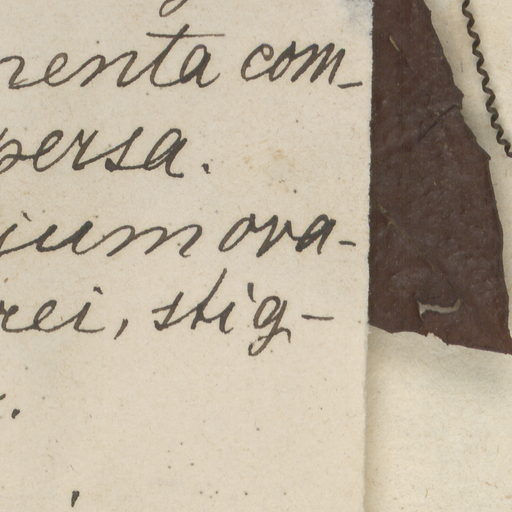 renta com-
persa.
ium ova-
rei, stig-